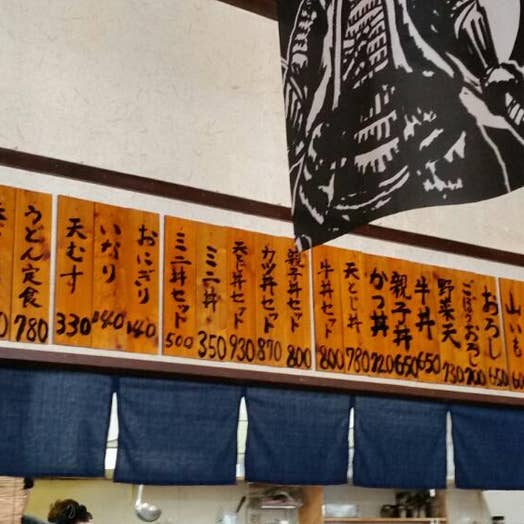 山いも
おろし 650
ごぼうおろし 700
野菜天 730
牛丼 650
親子丼 650
かつ丼 720
天とじ丼 780
牛丼セット 800
親子丼セット 800
カツ丼セット 870
天とじ丼セット 930
ミニ丼 350
ミニ丼セット 500
おにぎり 140
いなり 140
天むす 330
うどん定食 780